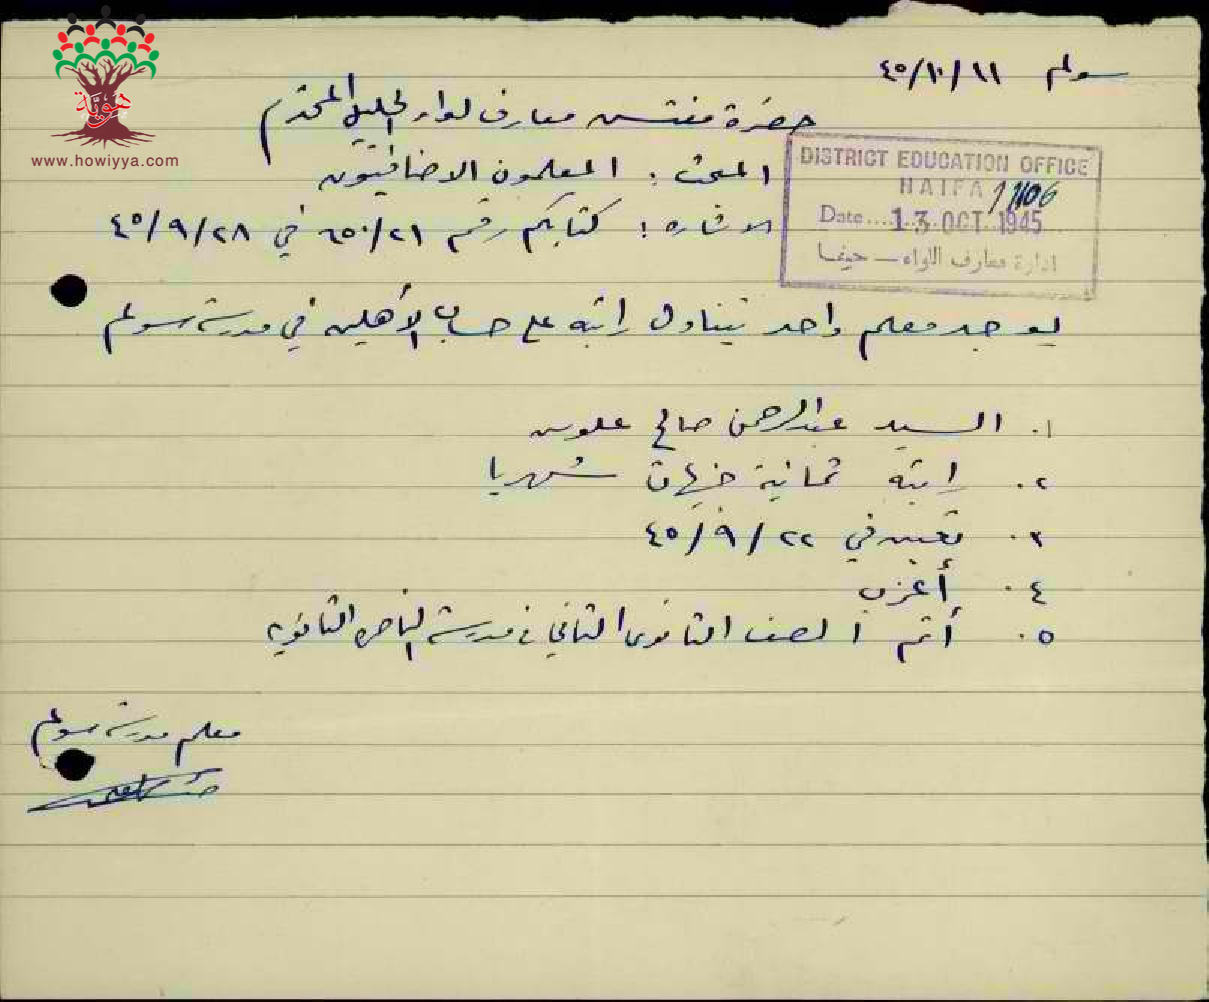 سولم ٤٥/١٠/١١
حضرة مفتش معارف لواء الجليل المحترم
المبحث : المعلمون الاضافيون
الاشاره : كتابكم رقم ٦٥٠/٢١ في ٤٥/٩/٢٨
DISTRICT EDUCATION OFFICE
HAIFA
Date.... 13 OCT 1945
ادارة معارف اللواء — حيفا
يوجد معلم واحد يتناول راتبه على حساب الأهلين في مدرسة سولم
١. السيد عبدالرحمن صالح علوس
٢. راتبه ثمانية جنيهات شهريا
٣. تعين في ٤٥/٩/٢٢
٤. أعزب
٥. أتم الصف الثانوي الثاني في مدرسة الناصره الثانويه
معلم مدرسة سولم
هوية
www.howiyya.com